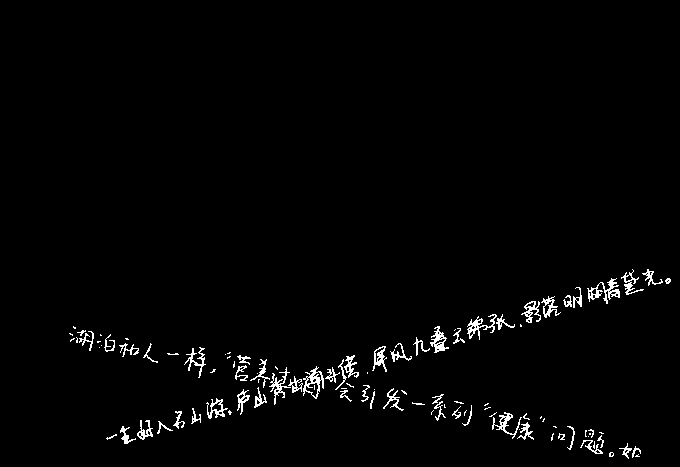 湖泊和人一样，“营养过剩”会引发一系列“健康”问题。如
一生好入名山游。庐山秀出南斗傍，屏风九叠云锦张，影落明湖青黛光。